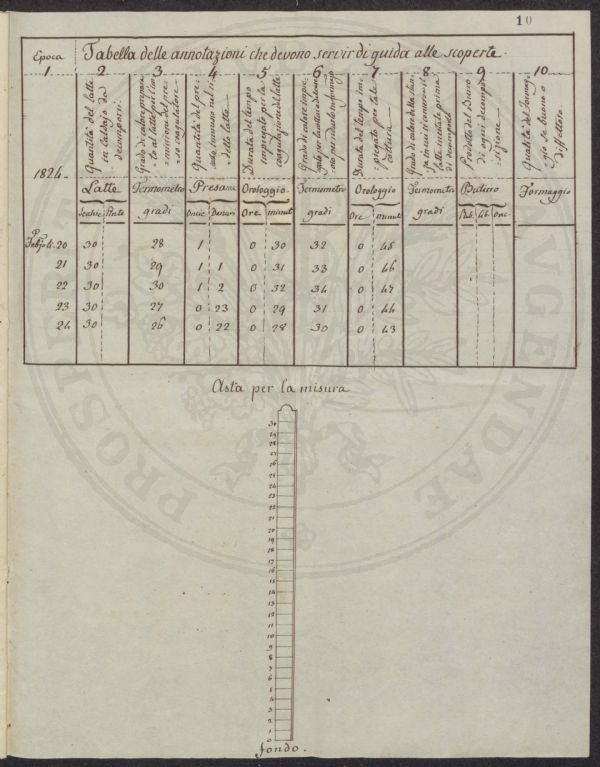 10
Epoca Tabella delle annotazioni che devono servir di guida alle scoperte.
1 2 3 4 5 6 7 8 9 10
1824.
Quantità del latte
in caldajo da
decomporsi.
Grado di calore
Quantità del
latte
Durata del tempo
impiegato per la
coagulazione del latte
Grado di calore
Durata del tempo im-
piegato per tale
cottura
Grado di calore della
Prodotto del Buro
di ogni decompo-
sizione
Qualità del formag-
gio se buono o
diffettoso
Latte Termometro Presame Orologgio Termometro Orologgio Termometro Butiro Formaggio
Secchie Pinte gradi Oncie Denari Ore minuti gradi Ore minuti gradi lib. Onc.
20 30 28 1 0 30 32 0 45
21 30 29 1 1 0 31 33 0 46
22 30 30 1 2 0 32 34 0 47
23 30 27 0 23 0 29 31 0 44
24 30 26 0 22 0 28 30 0 43
Asta per la misura
30
29
28
27
26
25
24
23
22
21
20
19
18
17
16
15
14
13
12
11
10
9
8
7
6
5
4
3
2
1
0
fondo.
PROSPERITATI AUGENDAE